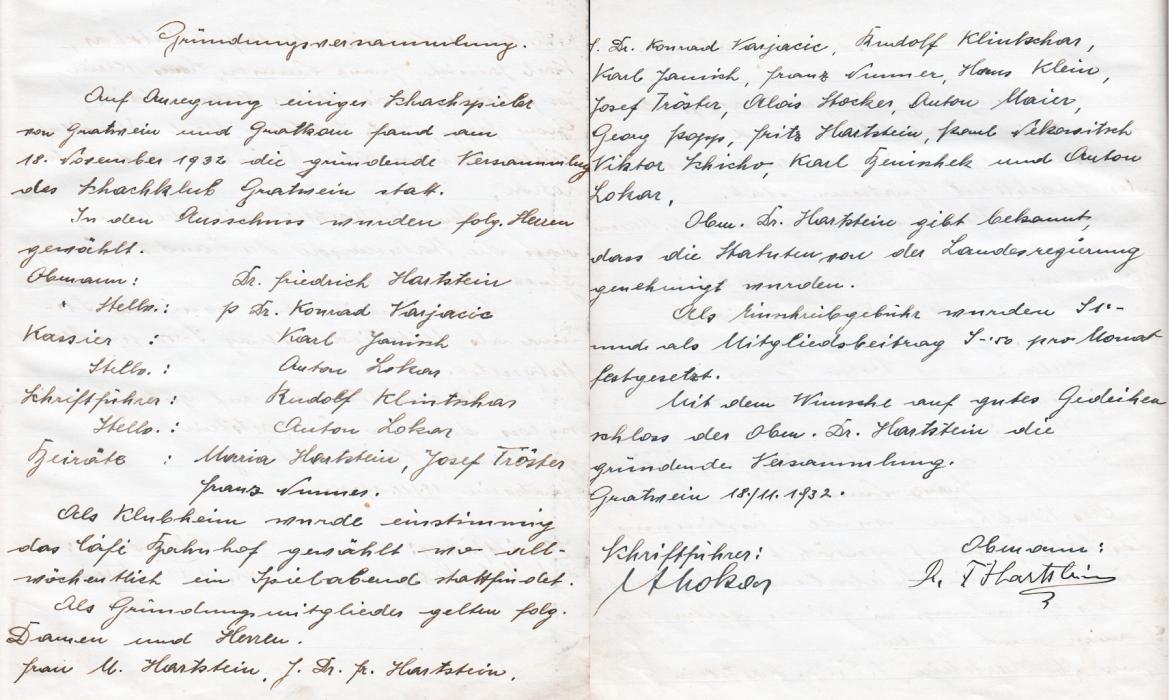 Gründungsversammlung.
Auf Anregung einiger Schachspieler
von Gratwein und Gratkorn fand am
18. November 1932 die gründende Versammlung
des Schachklub Gratwein statt.
In den Ausschuss wurden folg. Herren
gewählt.
Obmann: Dr. Friedrich Hartstein
" Stellv.: Dr. Konrad Varjacic
Kassier : Karl Janisch
Stellv. : Anton Lokar
Schriftführer: Rudolf Klintschar
Stellv. : Anton Lokar
Beiräte : Maria Hartstein, Josef Tröster
Franz Nummer.
Als Klubheim wurde einstimmig
das Café Bahnhof gewählt wo all-
wöchentlich ein Spielabend stattfindet.
Als Gründungsmitglieder gelten folg.
Damen und Herren.
Frau M. Hartstein, J. Dr. Fr. Hartstein,
J. Dr. Konrad Varjacic, Rudolf Klintschar,
Karl Janisch, Franz Nummer, Hans Klein,
Josef Tröster, Alois Stocker, Anton Maier,
Georg Popp, Fritz Hartstein, Paul Nekowitsch
Viktor Schicho, Karl Benischek und Anton
Lokar,
Obm. Dr. Hartstein gibt bekannt,
dass die Statuten von der Landesregierung
genehmigt wurden.
Als Einschreibgebühr wurden S 1·-
und als Mitgliedsbeitrag S -·50 pro Monat
festgesetzt.
Mit dem Wunsche auf gutes Gedeihen
schloss der Obm. Dr. Hartstein die
gründende Versammlung.
Gratwein 18./11.1932.
Schriftführer: Obmann:
A Lokar Dr. F Hartstein